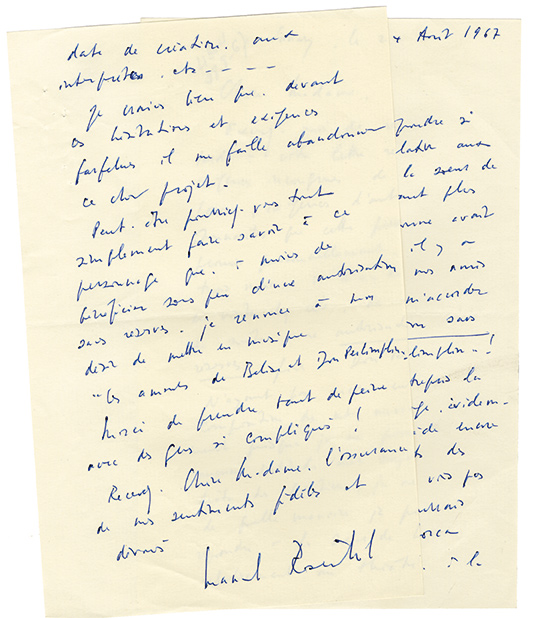 date de création. aux
interprètes. etc - - - -
Je crains bien que. devant
ces hésitations et exigences
farfelues il me faille abandonner
ce cher projet.
Peut-être pourriez-vous tout
simplement faire savoir à ce
personnage que. à moins de
bénéficier sous peu d'une autorisation
sans réserve. je renonce à mon
désir de mettre en musique
"Les amours de Belise et Don Perlimplin
Merci de prendre tant de peine
avec des gens si compliqués !
Recevez. Chère Madame. l'assurance
de mes sentiments fidèles et
dévoués
Manuel Rosenthal
Août 1967
prendre si
la sœur de
plus
avait
il y a
nos amis
m'accorder
sans
limplin - !
trepris la
évidem-
ide encore
ts des
vous pas
pourrais
orca
à la